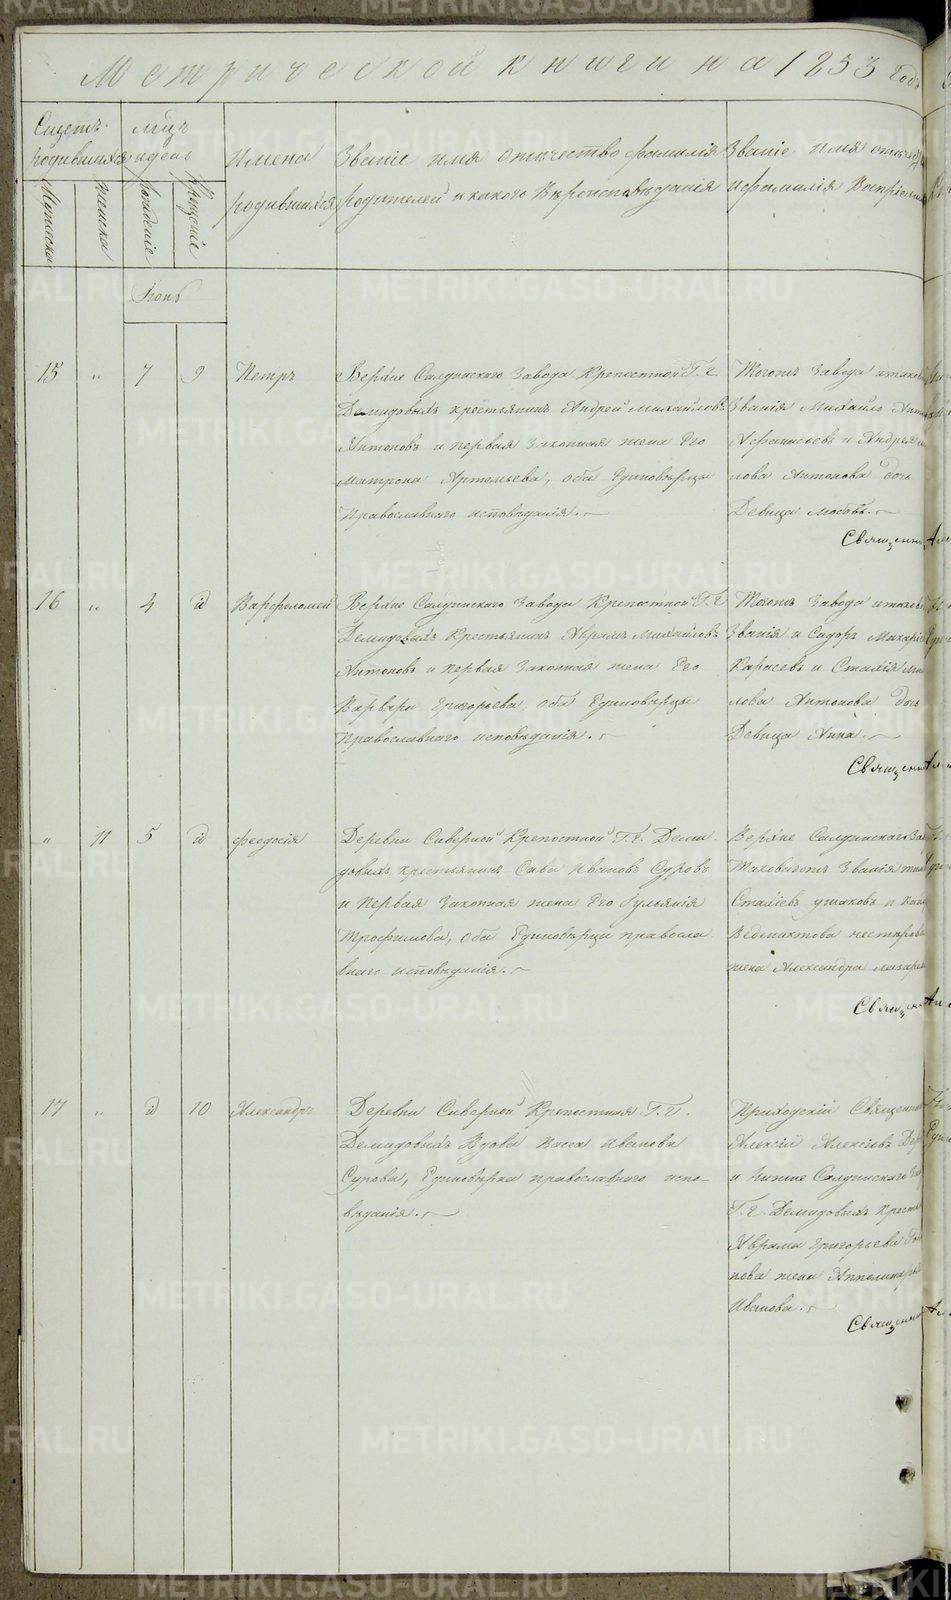 Метрической книги на 1853 годъ
Счетъ родившихся
мѣсяцъ и день
Имена родившихся
Званіе имя отчество фамилія родителей и какого Вѣроисповѣданія
Званіе имя отчес
и фамилія Воспріемн
Мужеска
Женска
Рожденіе
Крещеніе
Іюнь
15 " 7 9 Петръ
Верхне Салдинскаго Завода Крѣпостной Г. г
Демидовыхъ крестьянинъ Андрей Михайловъ
Антоновъ и первая Законная жена Его
Матрона Артемьева, оба Единовѣрцы
Православнаго исповѣданія.
Тогожъ Завода и таков
Званія Михайло Анто
Афанасьевъ и Андрея
лова Антонова дочь
Девица Любовь.
Священни
16 " 4 id Варфоломей
Верхне Салдинскаго Завода Крѣпостной Г. г
Демидовыхъ Крестьянинъ Аврамъ Михайловъ
Антоновъ и первая Законная жена Его
Варвара Григорьева, оба Единовѣрцы
православнаго исповѣданія.
Тогожъ Завода и таков
Званія и Сидоръ Макаріе
Карасевъ и
лова Антонова дочь
Девица Анна.
Священни
" 11 5 id Феодосія
Деревни Северной Крѣпостной Г. г. Деми
довыхъ крестьянинъ Сава Ивановъ Суровъ
и Первая Законная жена Его Гульянія
Трофимова, оба Единовѣрцы правосла
внаго исповѣданія.
Верхне Салдинскаго За
Таковагожъ Званія
Ушаковъ и
жена Александра Лазаре
Священ
17 " id 10 Александръ
Деревни Северной Крѣпостная Г. г.
Демидовыхъ Вдова Васса Иванова
Сурова, Единовѣрка православнаго испо-
вѣданія.
Приходскій Священн
Алексій Алексѣевъ
и Нижне Салдинскаго Зав
Г. г Демидовыхъ Кресть
Аврама Григорьева
нова жена Аппелинарія
Иванова.
Священни
METRIKI.GASO-URAL.RU